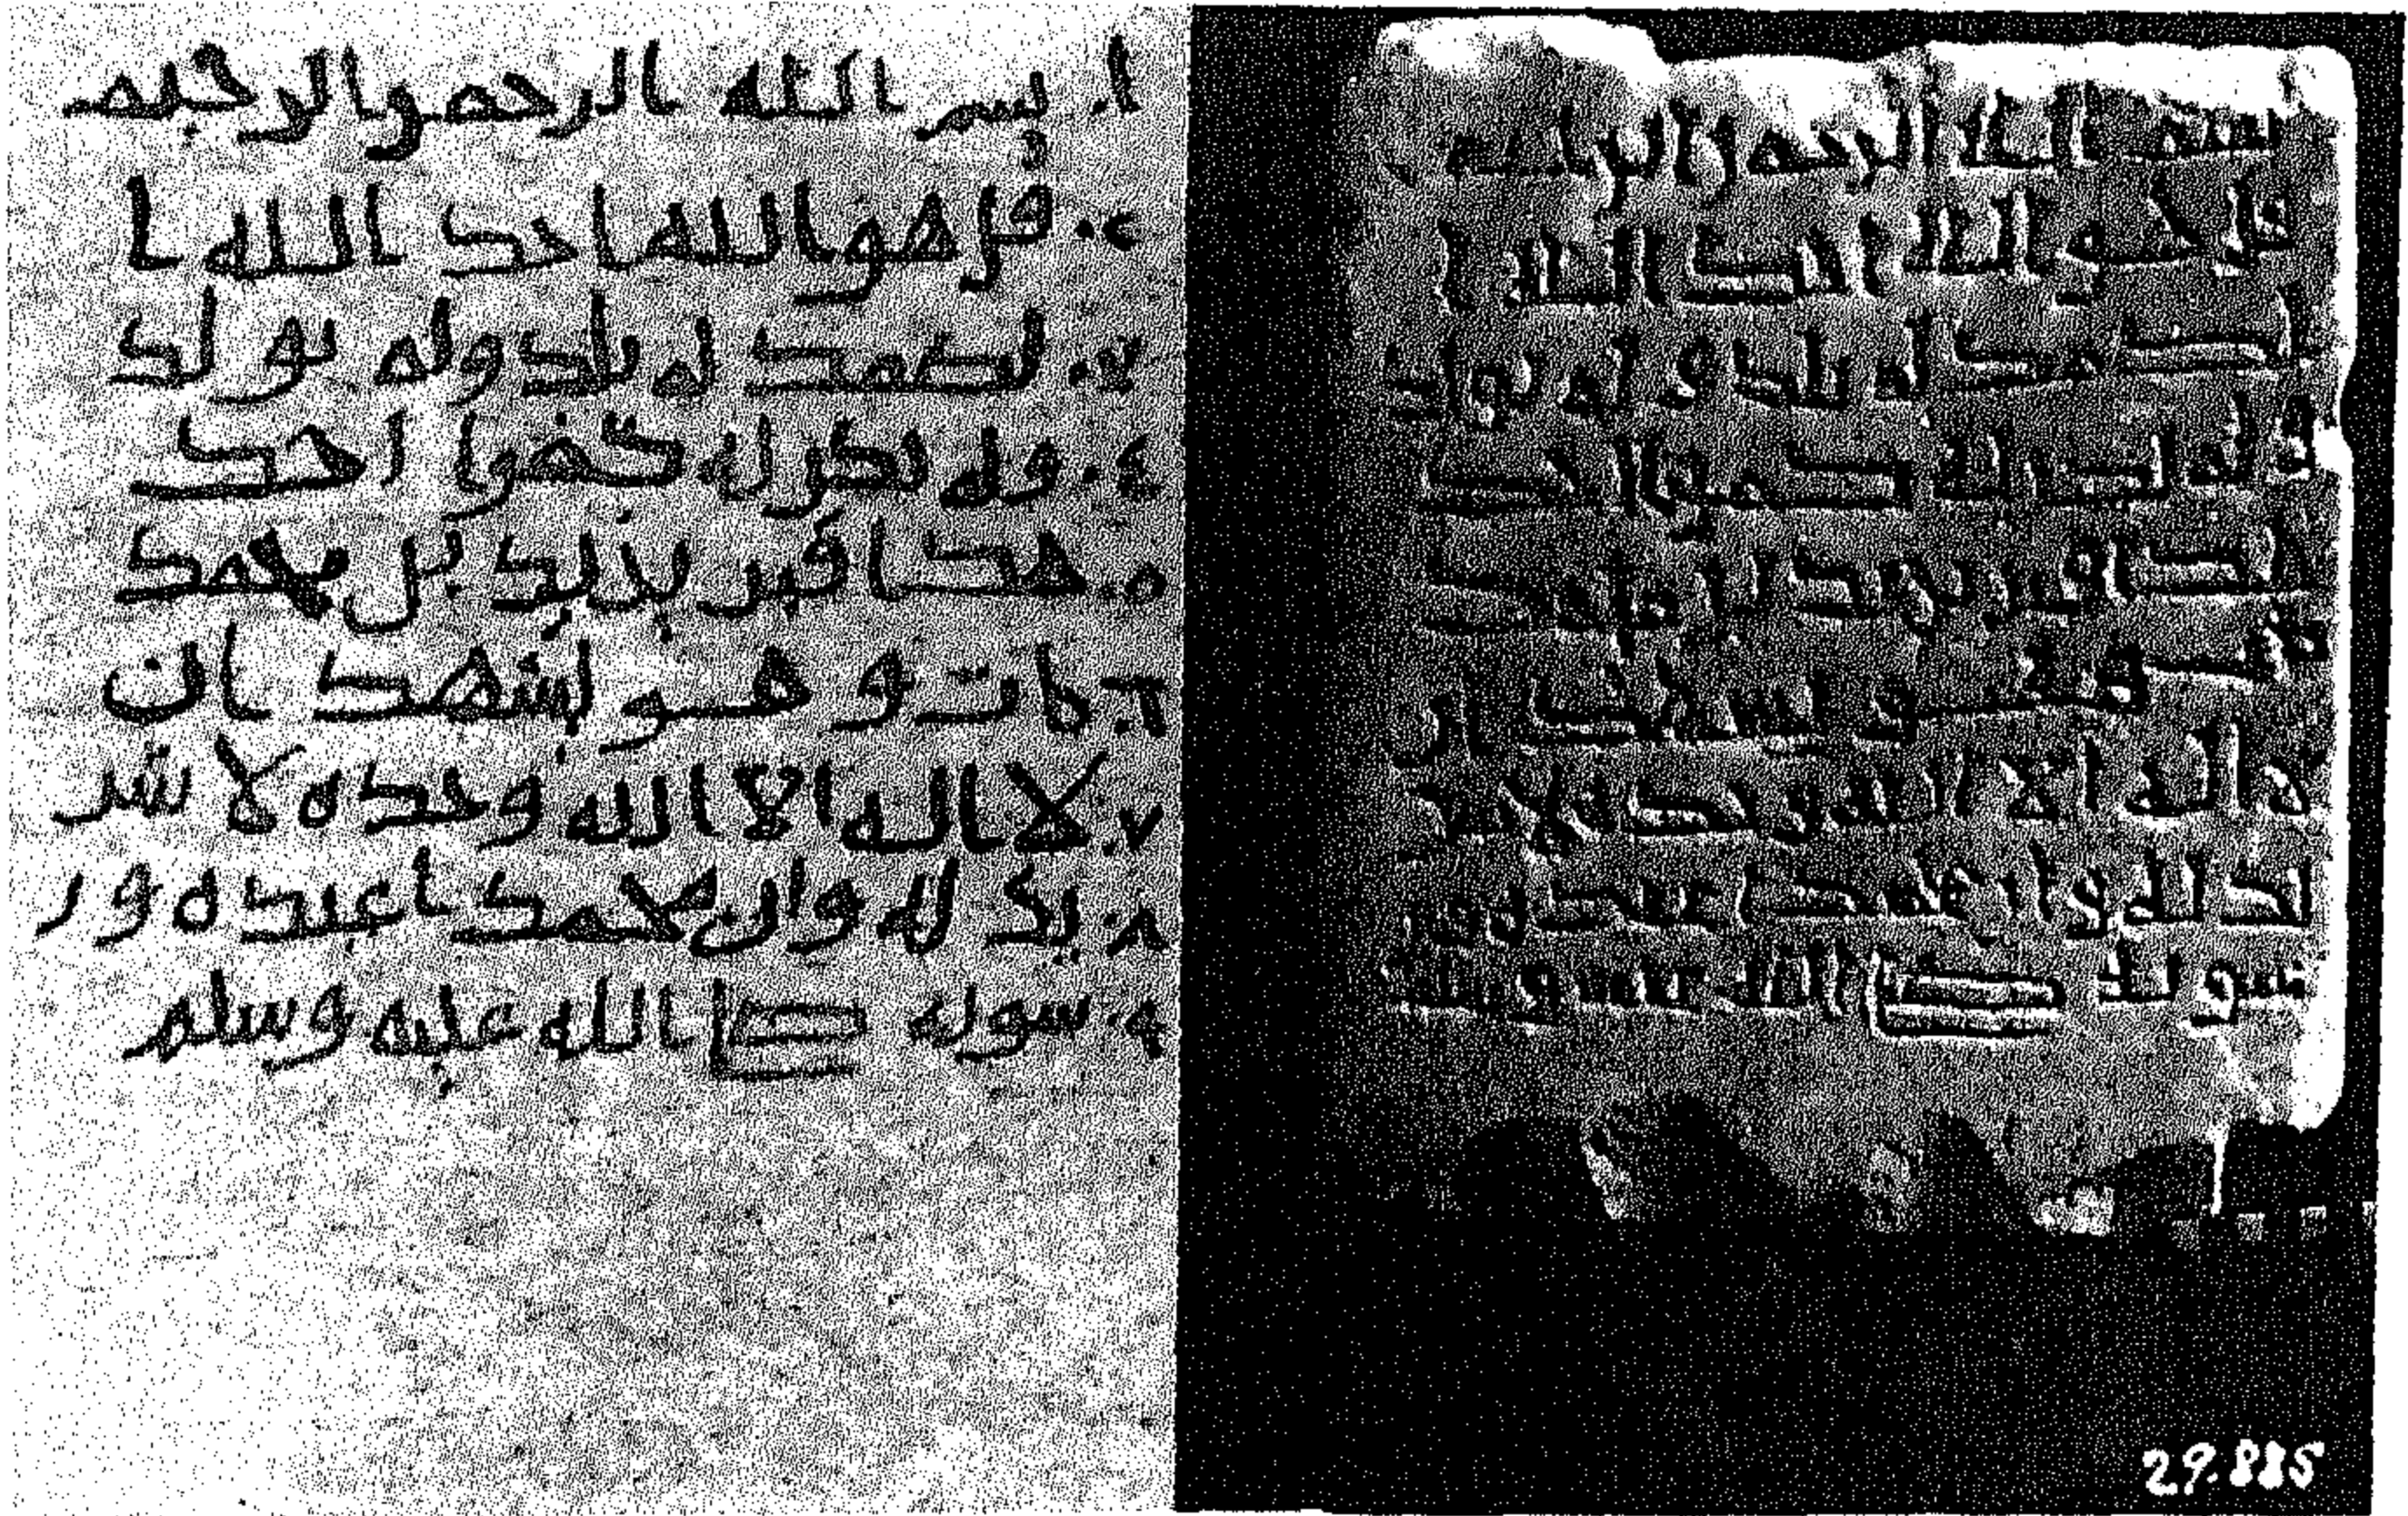 ١. بسم الله الرحمن الرحيم
٢. قل هو الله احد الله ا
٣. لصمد لم يلد ولم يولد
٤. ولم يكن له كفوا احد
٥. هدا قبر يزيد بن محمد
٦. مات وهو يشهد ان
٧. لا اله الا الله وحده لا شر
٨. يك له وان محمدا عبده ور
٩. سوله صلى الله عليه وسلم
بسم الله الرحمن الرحيم
قل هو الله احد الله ا
لصمد لم يلد ولم يولد
ولم يكن له كفوا احد
هدا قبر يزيد بن محمد
مات وهو يشهد ان
لا اله الا الله وحده لا شر
يك له وان محمدا عبده ور
سوله صلى الله عليه وسلم
29.885